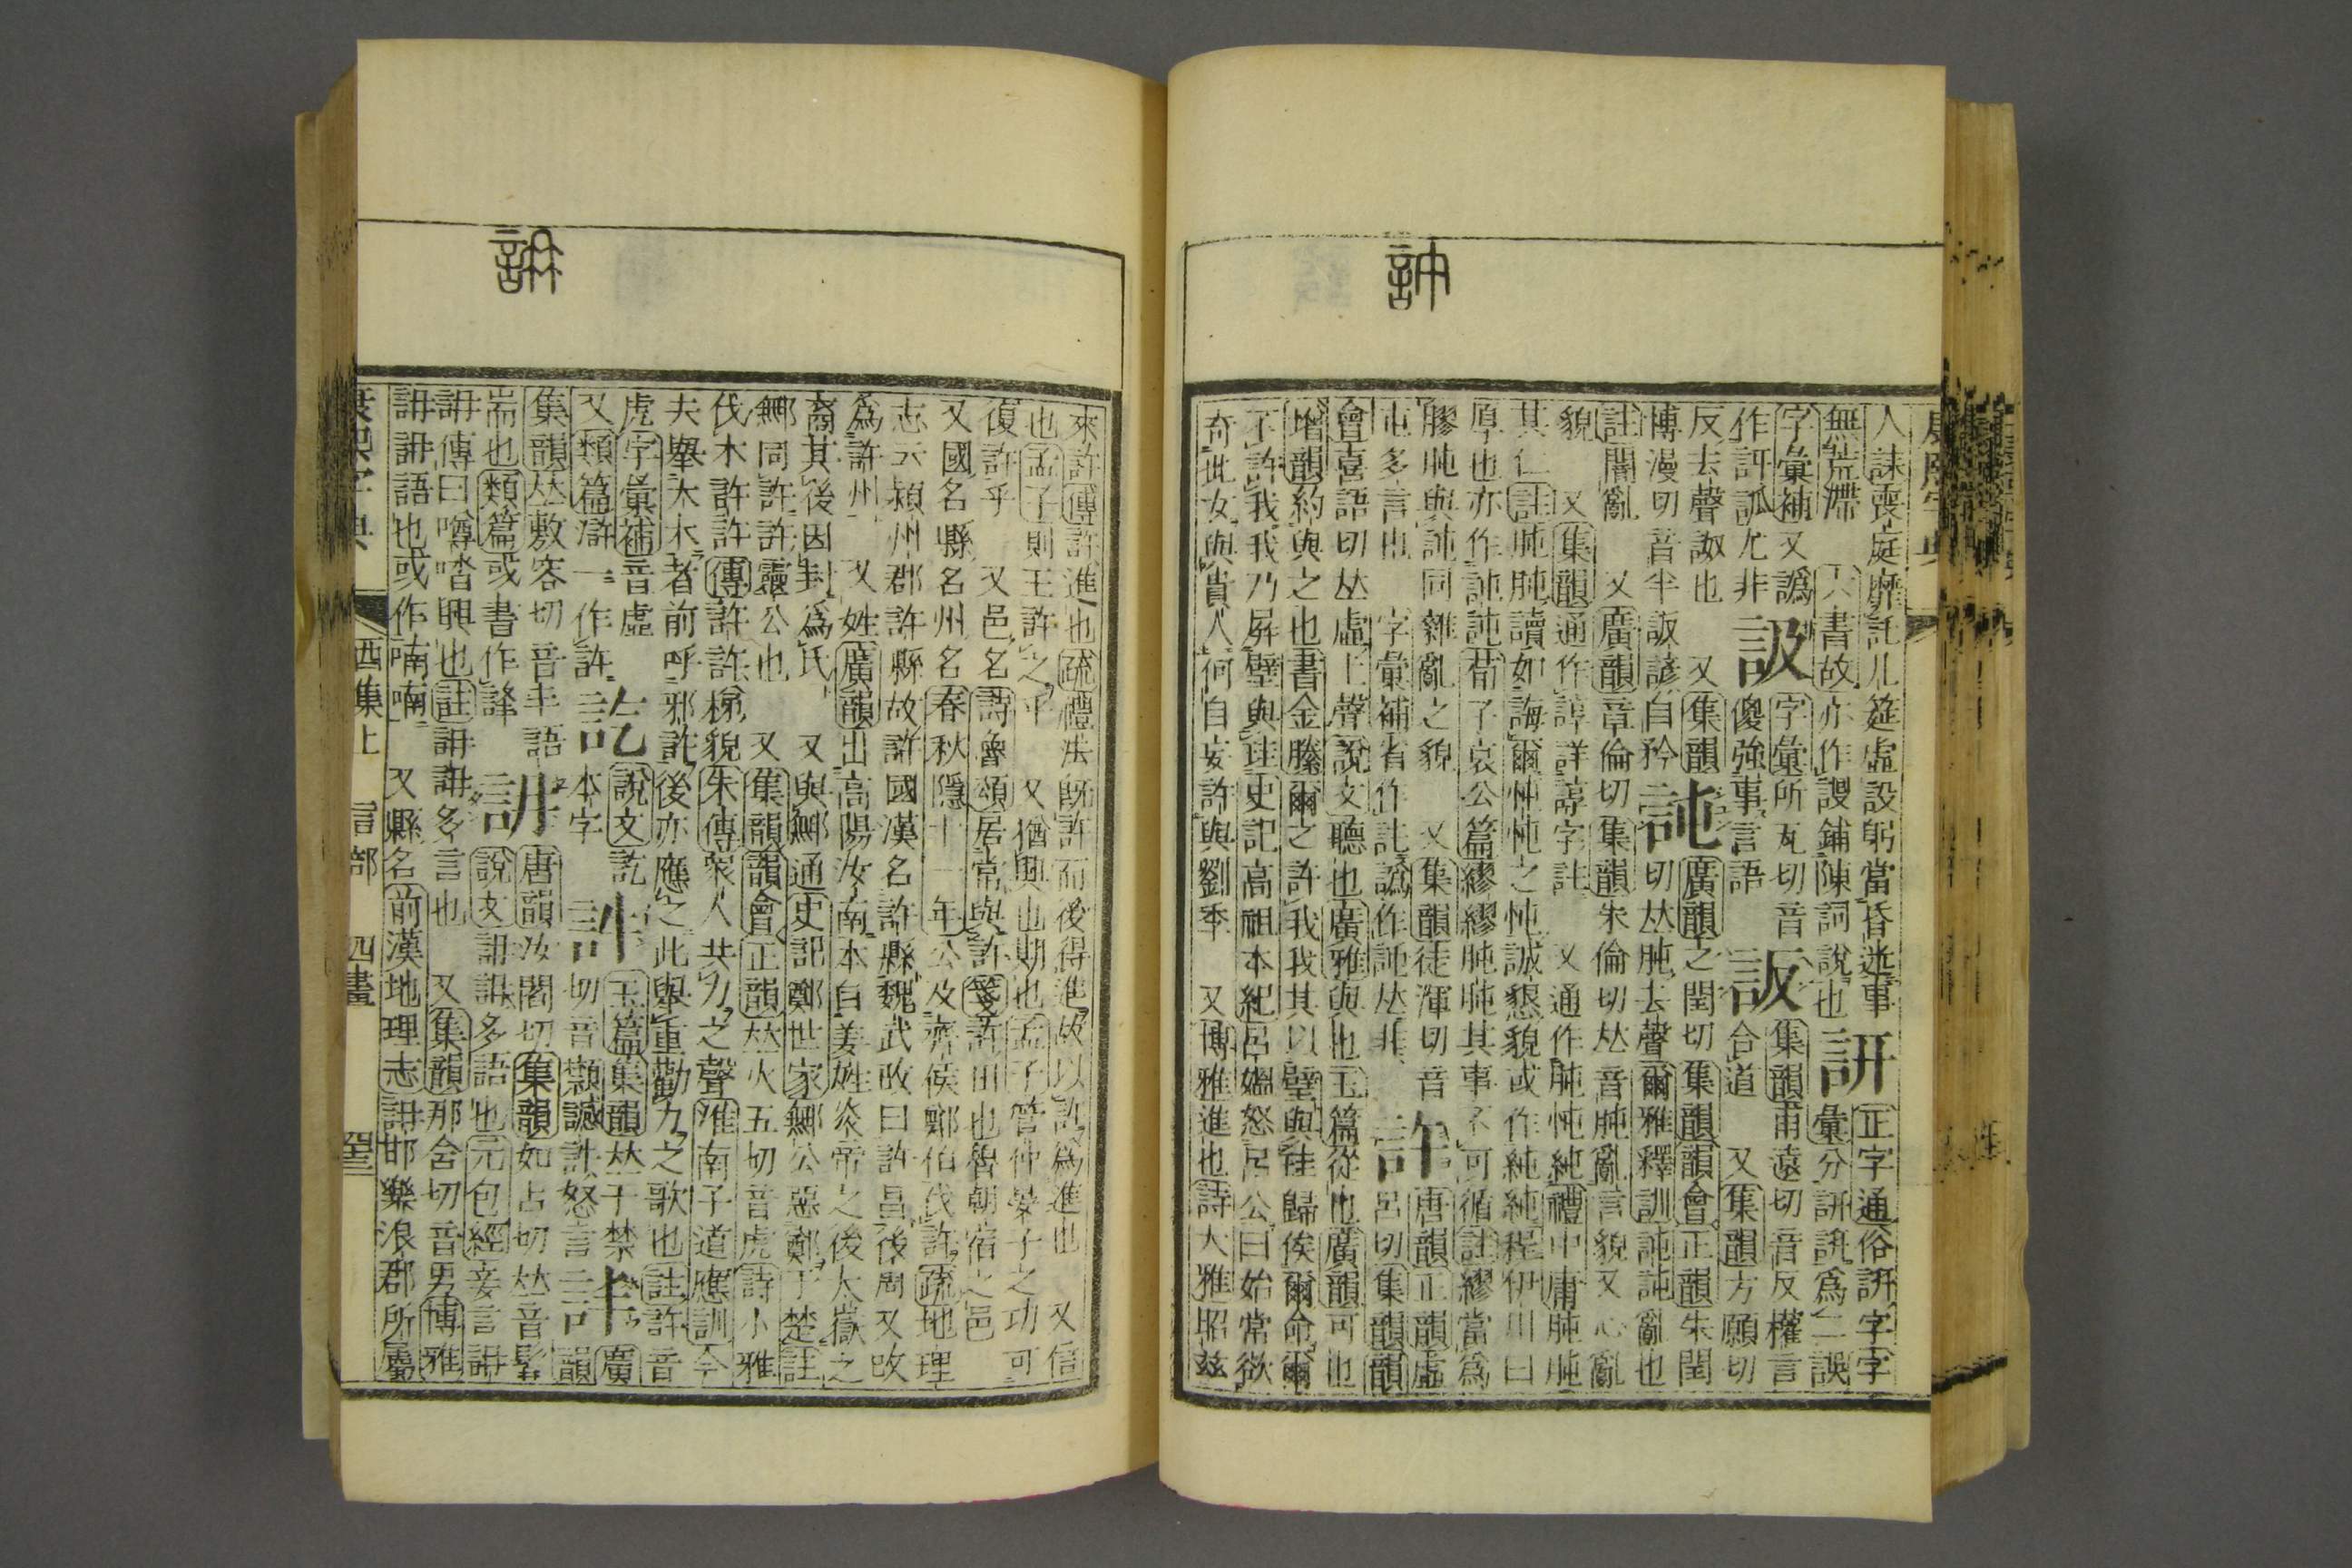 許
康熙字典
人諫喪庭靡託几筵虛設躬當昏迷事
無荒滯 六書故亦作䛐鋪陳詞說也
訮
正字通俗訮字字
彙分訮訮爲二誤
字彙補又譌
作訝訤尤非
字彙所瓦切音
傻強事言語
訯
集韻甫遠切音反權言
合道 又集韻方願切
反去聲詉也 又集韻
博漫切音半詉諺自矜
訰
廣韻之閏切集韻韻會正韻朱閏
切𠀤肫去聲爾雅釋訓訰訰亂也
註闇亂 又廣韻章倫切集韻朱倫切𠀤音肫亂言貌又心亂
貌 又集韻通作諄詳諄字註 又通作肫忳純禮中庸肫肫
其仁註肫肫讀如誨爾忳忳之忳誠懇貌或作純純程伊川曰
厚也亦作訰訰荀子哀公篇繆繆肫肫其事不可循註繆當爲
膠肫與訰同雜亂之貌 又集韻徒渾切音
屯多言也 字彙補省作託譌作訑𠀤非
許
唐韻正韻虛
呂切集韻韻
會喜語切𠀤虛上聲說文聽也廣雅與也玉篇從也廣韻可也
增韻約與之也書金縢爾之許我我其以璧與珪歸俟爾命爾
不許我我乃屏璧與珪史記高祖本紀呂媼怒呂公曰始常欲
奇此女與貴人何自妄許與劉季 又博雅進也詩大雅昭兹
來許傳許進也疏禮法既許而後得進故以許爲進也 又信
也孟子則王許之乎 又猶與也期也孟子管仲晏子之功可
復許乎 又邑名詩魯頌居常與許箋許田也魯朝宿之邑
又國名縣名州名春秋隱十一年公及齊侯鄭伯伐許疏地理
志云潁州郡許縣故許國漢名許縣魏武改曰許昌後周又改
爲許州 又姓廣韻出高陽汝南本自姜姓炎帝之後大嶽之
裔其後因封爲氏 又與鄦通史記鄭世家鄦公惡鄭于楚註
鄦同許許靈公也 又集韻韻會正韻𠀤火五切音虎詩小雅
伐木許許傳許許柹貌朱傳衆人共力之聲淮南子道應訓今
夫舉大木者前呼邪許後亦應之此舉重勸力之歌也註許音
虎字彙補音虛
又類篇滸一作許
訖
說文訖
本字
訡
玉篇集韻𠀤于禁
切音類諴訐怒言
廣
韻
集韻𠀤敷容切音丰語
耑也類篇或書作諽
訷
唐韻汝閻切集韻如占切𠀤音髯
說文訷訷多語也元包經妾言訷
訷傳曰噂喈興也註訷訷多言也 又集韻那含切音男博雅
訷訷語也或作喃喃 又縣名前漢地理志訷邯樂浪郡所屬
康熙字典 酉集上 言部 四畫